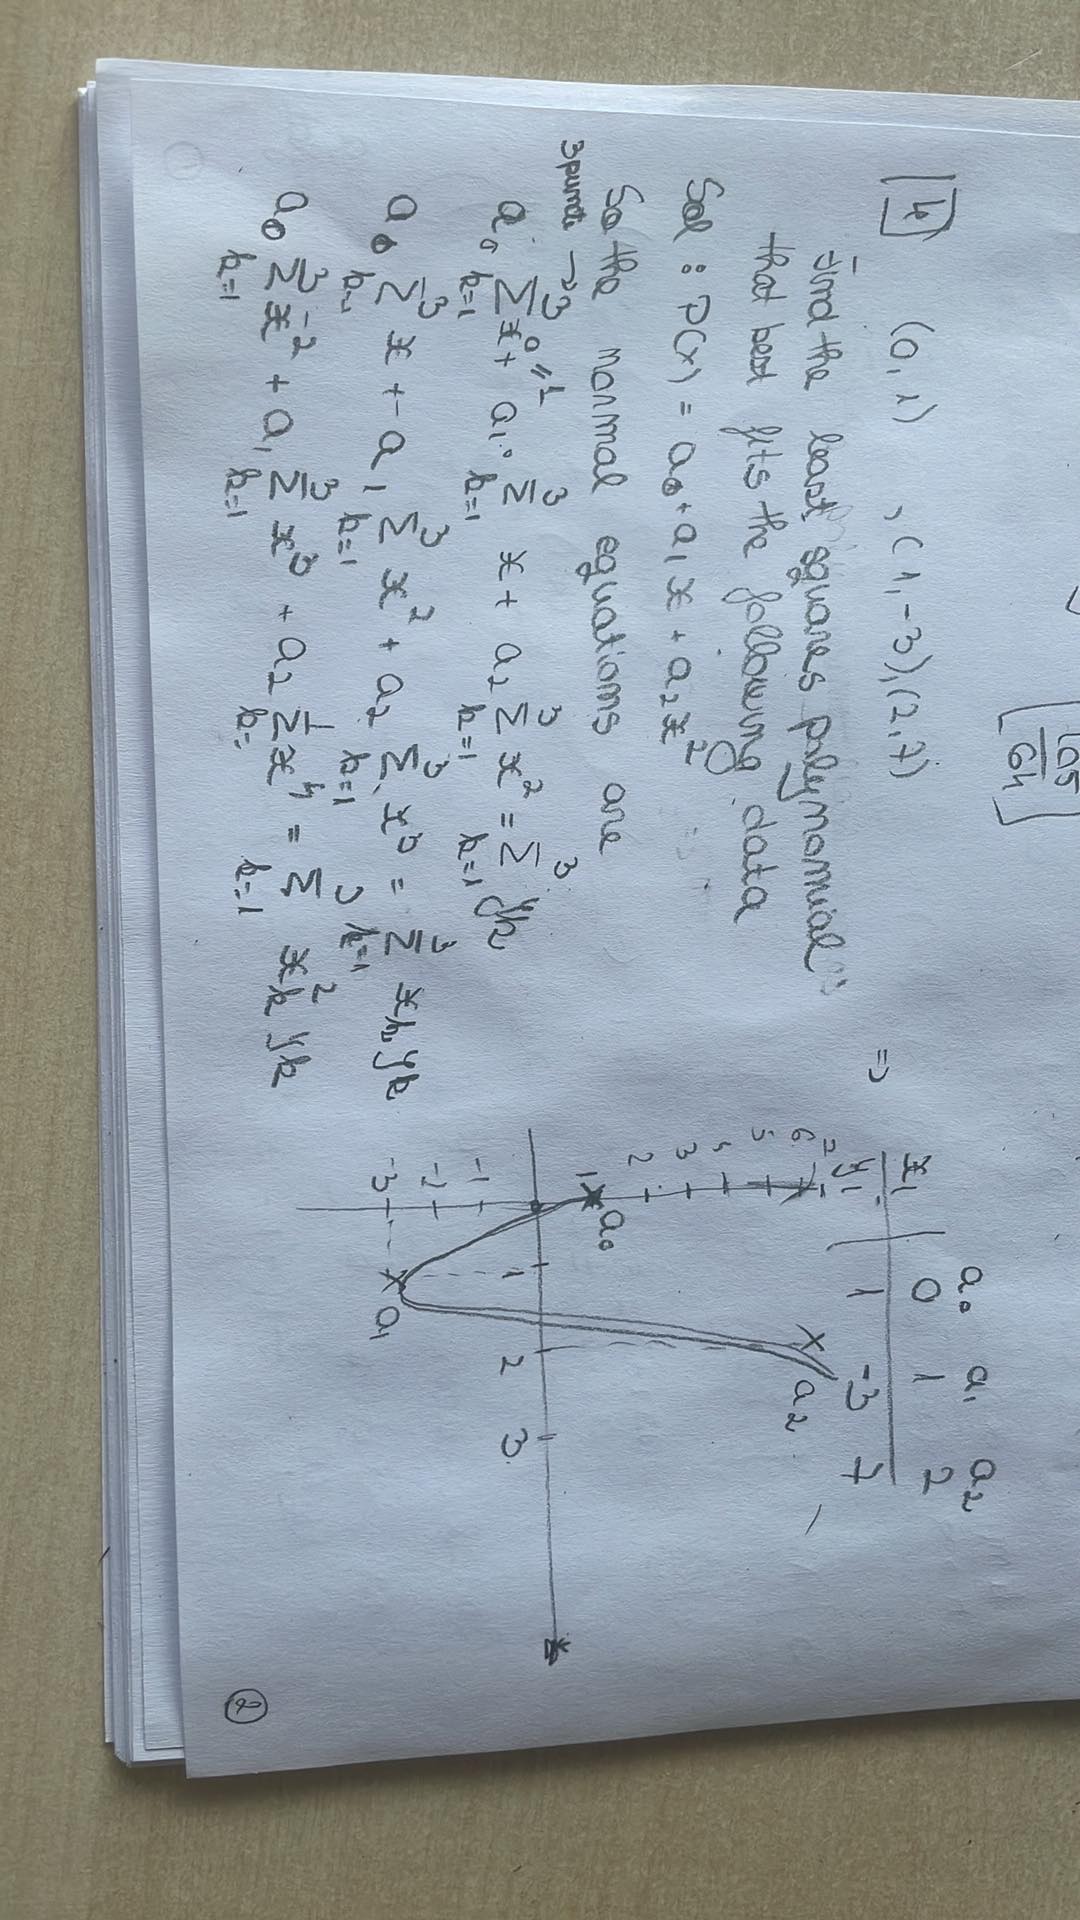 105
64
4 (0,1) , (1,-3), (2,7)
Find the least squares polynomial
that best fits the following data
Sol : P(x) = a0 + a1 x + a2 x^2
So the normal equations are
3 puncte → a0 Σ(k=1..3) x^0 "1 + a1 · Σ(k=1..3) x + a2 Σ(k=1..3) x^2 = Σ(k=1..3) yk
a0 Σ(k=..3) x + a1 Σ(k=1..3) x^2 + a2 Σ(k=1..3) x^3 = Σ(k=1..3) xk yk
a0 Σ(k=1..3) x^2 + a1 Σ(k=1..3) x^3 + a2 Σ(k=..1) x^4 = Σ(k=1..3) xk^2 yk
a0 a1 a2
⇒ xi | 0 1 2
yi | 1 -3 7
6 a2
5
3
2
1 a0
1 2 3
-1
-2
-3 a1
2